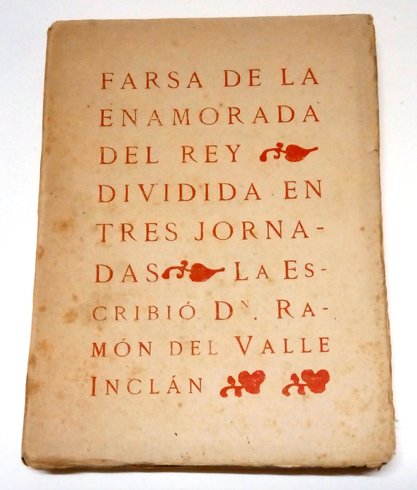 FARSA DE LA
ENAMORADA
DEL REY
DIVIDIDA EN
TRES JORNA-
DAS LA ES-
CRIBIÓ DN. RA-
MÓN DEL VALLE
INCLÁN